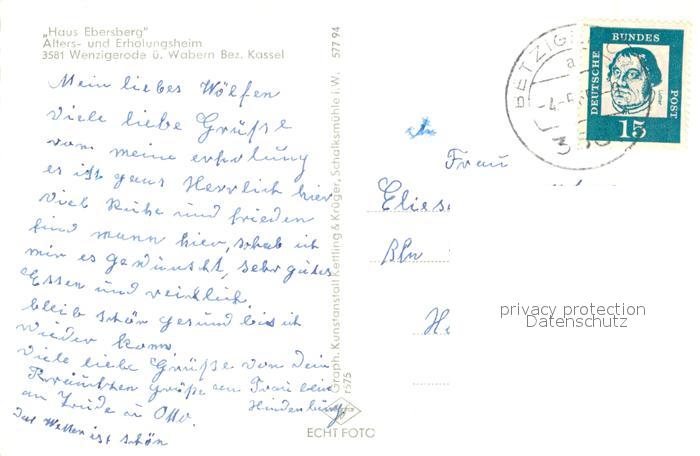 „Haus Ebersberg"
Alters- und Erholungsheim
3581 Wenzigerode ü. Wabern Bez. Kassel
577 94
Mein liebes Wölfen
viele liebe Grüße
von meine erholung
es ist ganz Herrlich hier
viel Ruhe und frieden
find mann hier, so hab ich
mir es gewünscht, sehr gutes
Essen und reichlich.
bleib schön gesund bis ich
wieder kom,
viele liebe Grüße von dein
Grüße an Frau
an Trude u Otto.
Hindenburg
das Wetter ist schön
Graph. Kunstanstalt Kettling & Krüger, Schalksmühle i. W.
1575
ECHT FOTO
BETZIG
a
4.-5
DEUTSCHE
BUNDES
POST
Luther
15
Frau
Elies
Bln
H
privacy protection
Datenschutz